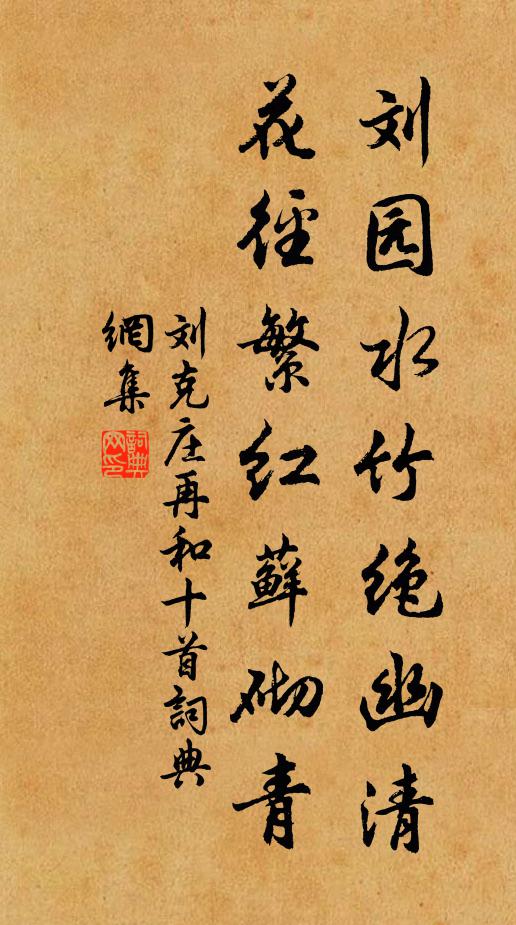 刘园水竹绝幽清
花径繁红蘚砌青
刘克庄再和十首詞典
網集
詞典
网印